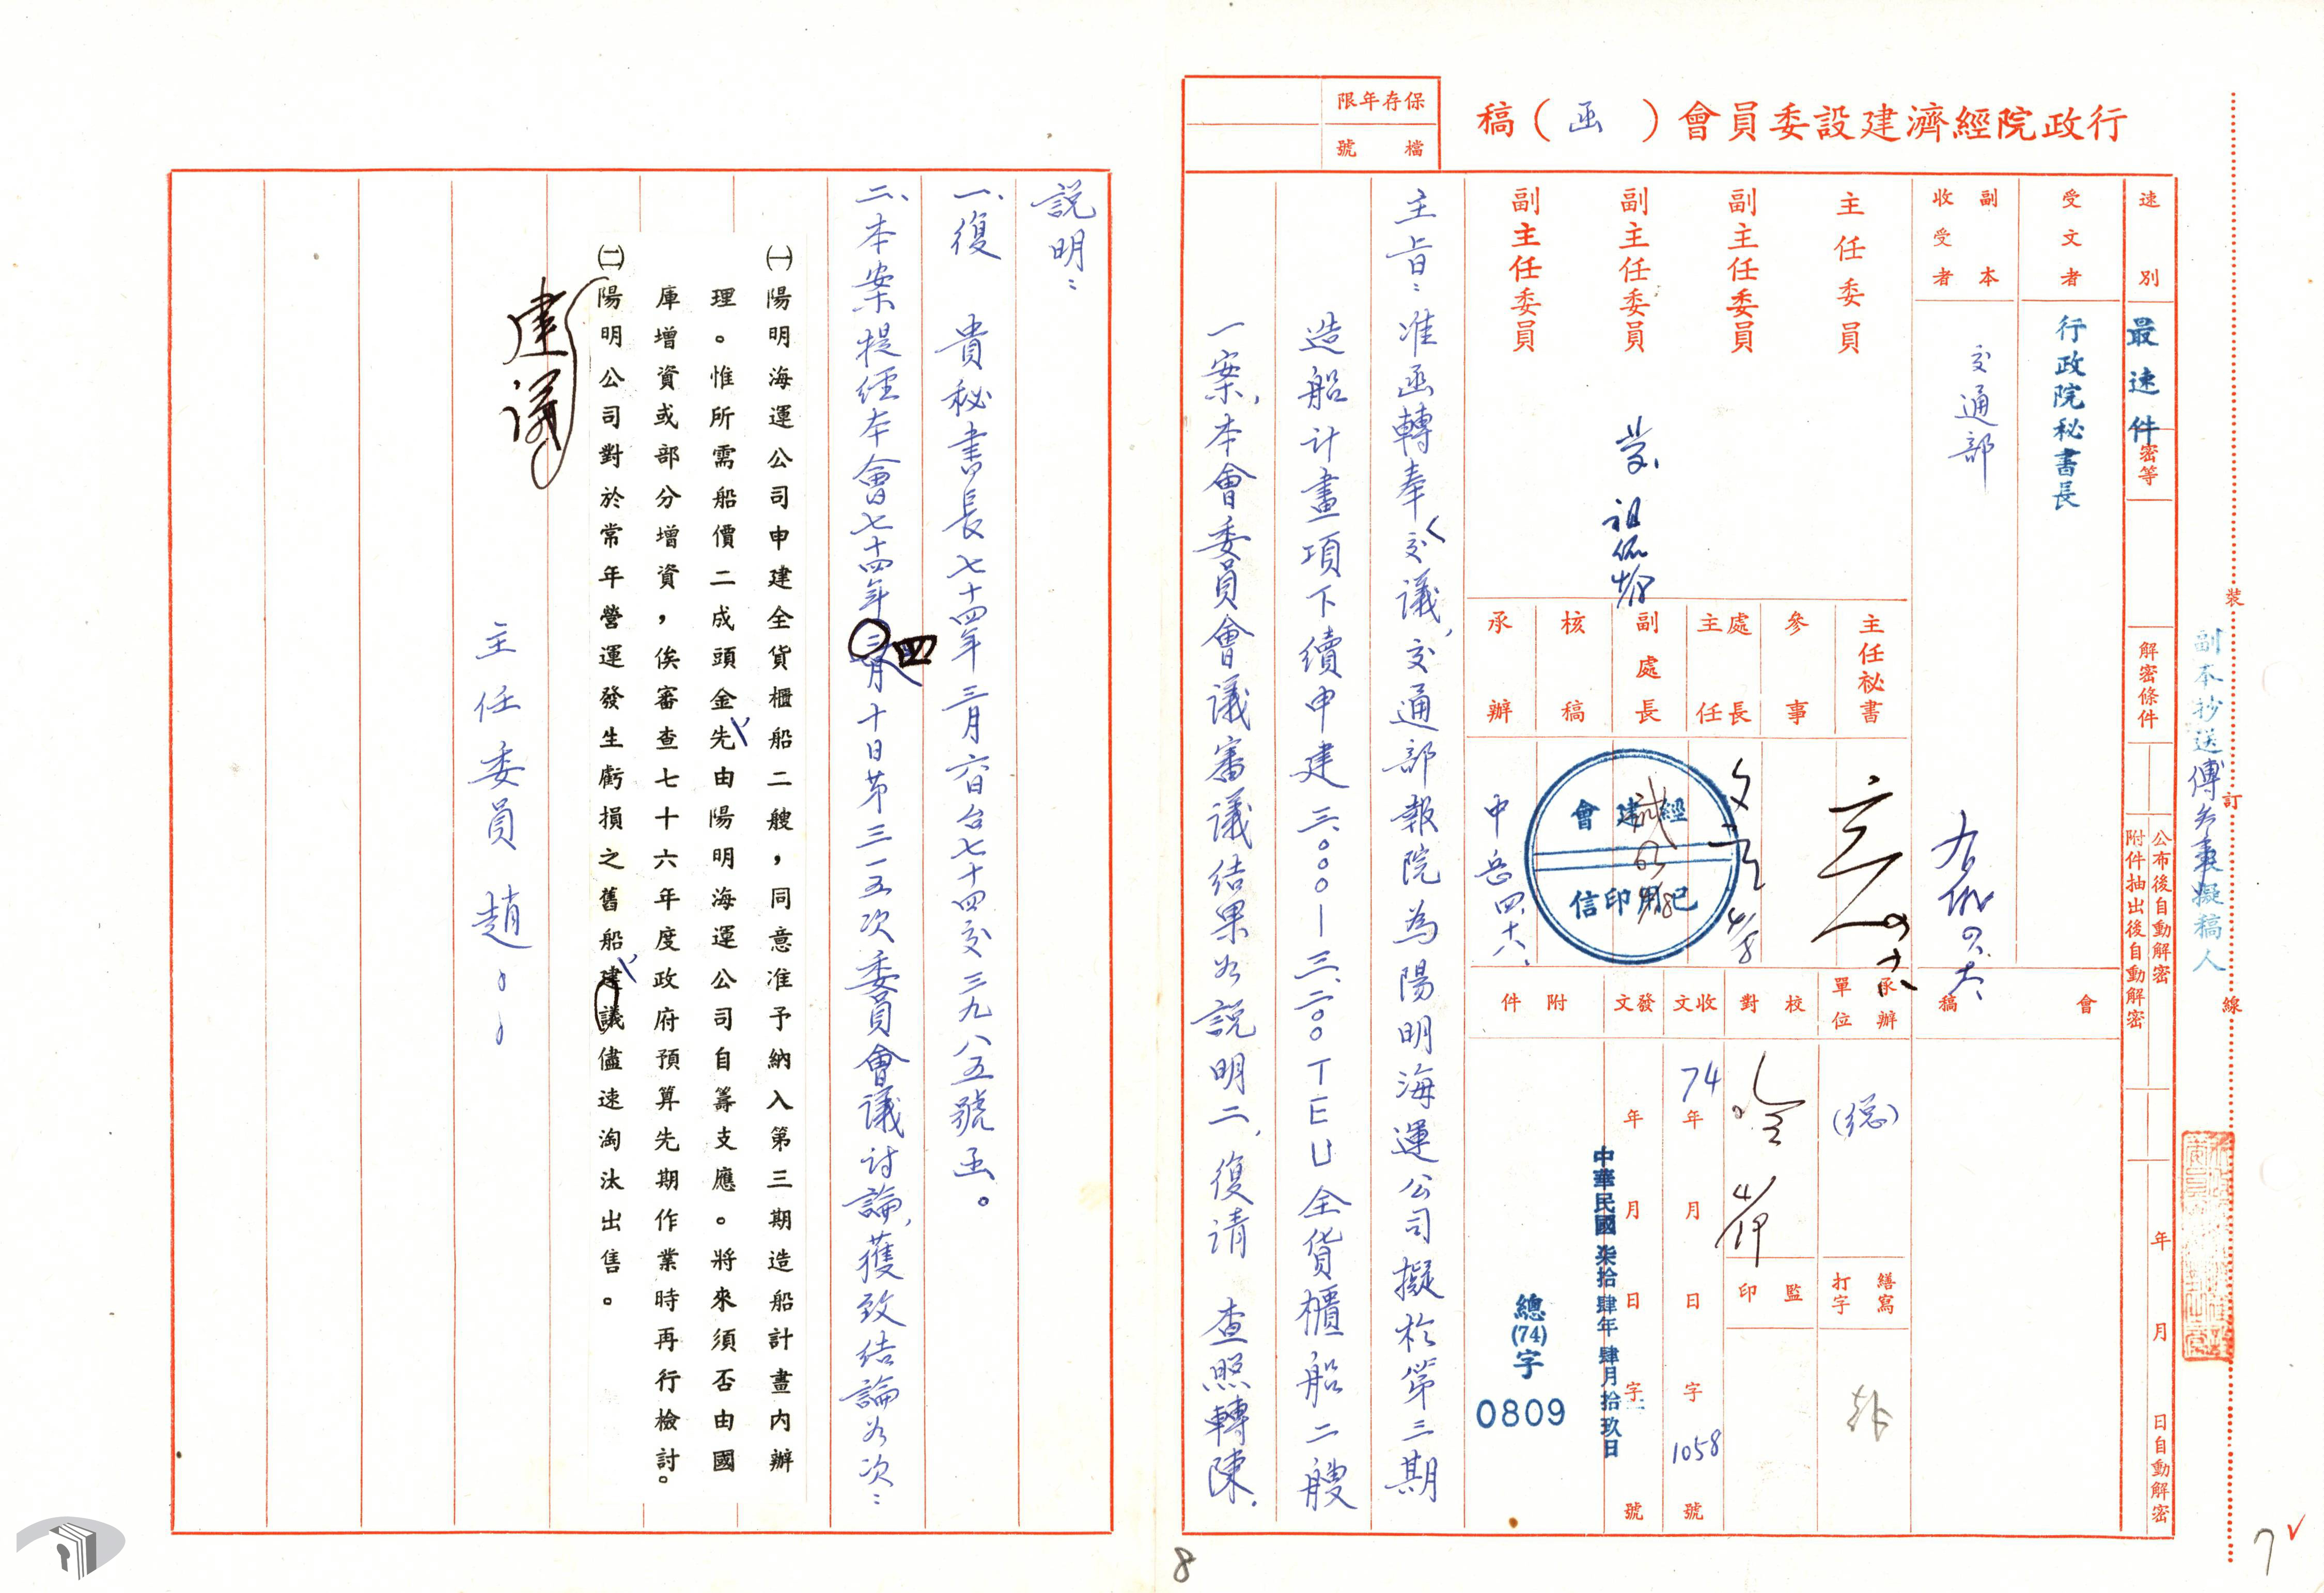 行政院經濟建設委員會（函）稿
保存年限
檔號
速別
最速件
密等
解密條件
公布後自動解密
附件抽出後自動解密
年月日自動解密
受文者
行政院秘書長
副本收受者
交通部
會稿
主任委員
副主任委員
副主任委員
副主任委員
主任秘書
參事
處長
主任
副處長
核稿
承辦
經建會
已用印信
承辦單位
(總)
校對
收文
發文
附件
繕寫
打字
監印
74年月日字1058號
年月日字號
中華民國柒拾肆年肆月拾玖日
總(74)字
0809
主旨：准函轉奉交議，交通部報院為陽明海運公司擬於第三期
造船計畫項下續申建三、〇〇〇—三、二〇〇TEU全貨櫃船二艘
一案，本會委員會議審議結果如說明二，復請　查照轉陳。
裝
訂
線
副本抄送傅
擬稿人
7
8
說明：
一、復　貴秘書長七十四年三月六日台七十四交三九八五號函。
二、本案提經本會七十四年三四月十日第三一五次委員會議討論，獲致結論如次：
㈠陽明海運公司申建全貨櫃船二艘，同意准予納入第三期造船計畫內辦
理。惟所需船價二成頭金先由陽明海運公司自籌支應。將來須否由國
庫增資或部分增資，俟審查七十六年度政府預算先期作業時再行檢討。
㈡陽明公司對於常年營運發生虧損之舊船建議儘速淘汰出售。
建議
主任委員　趙